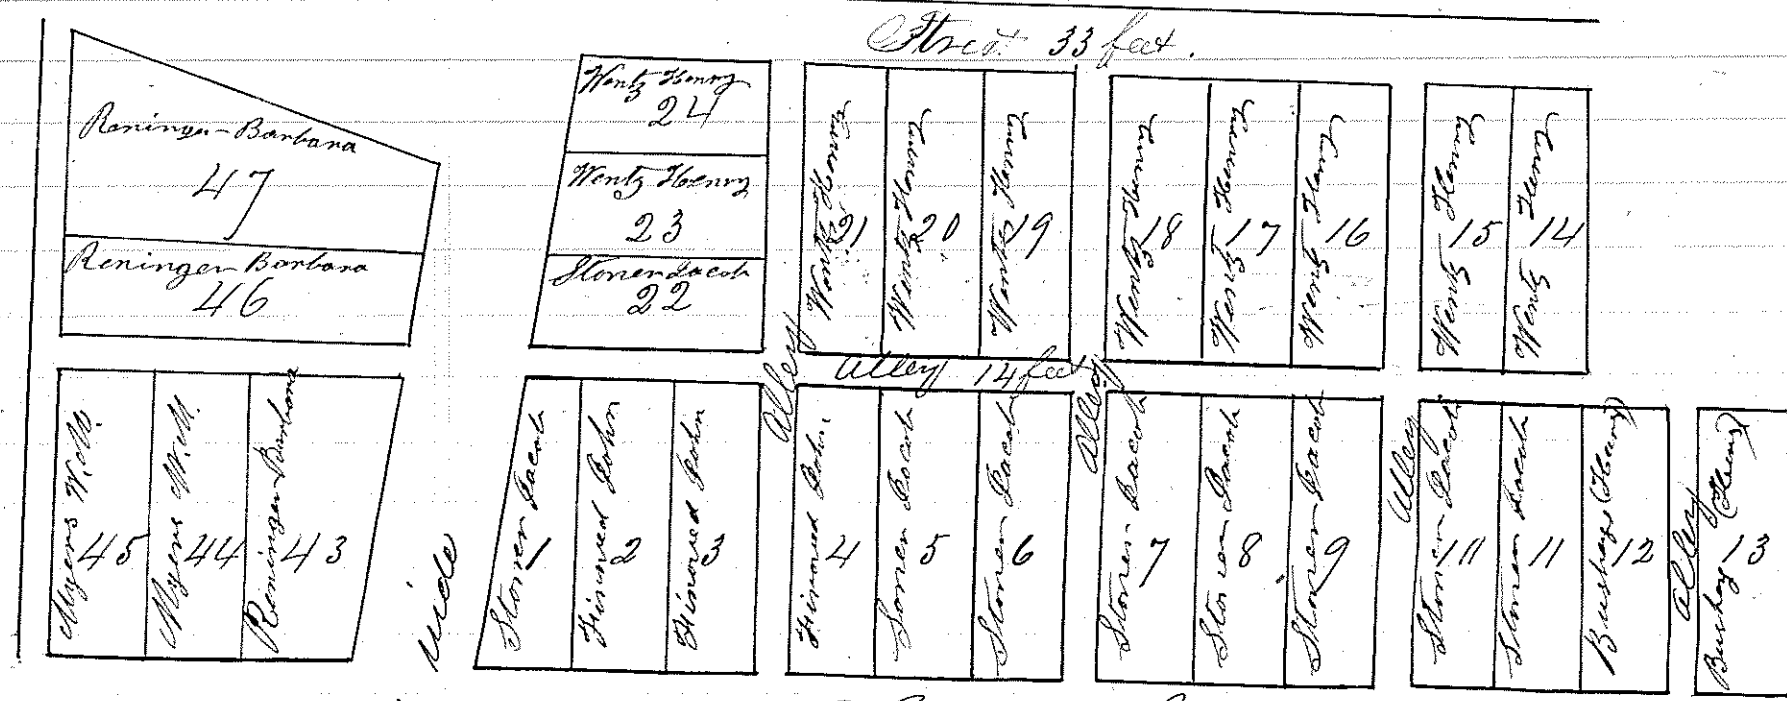 Street 33 feet.
Reninger Barbara
47
Reninger Barbara
46
Wentz Henry
24
Wentz Henry
23
Stoner Jacob
22
Wentz Henry
21
Wentz Henry
20
Wentz Henry
19
Wentz Henry
18
Wentz Henry
17
Wentz Henry
16
Wentz Henry
15
Wentz Henry
14
Alley
Alley 14 feet
Alley
Alley
Alley
Myers W. M.
45
Myers W. M.
44
Reninger Barbara
43
wide
Stoner Jacob
1
John
2
John
3
John
4
Soner Jacob
5
Stoner Jacob
6
Stoner Jacob
7
Stoner Jacob
8
Stoner Jacob
9
Stoner Jacob
11
Stoner Jacob
11
Bushey Henry
12
Bushey Henry
13